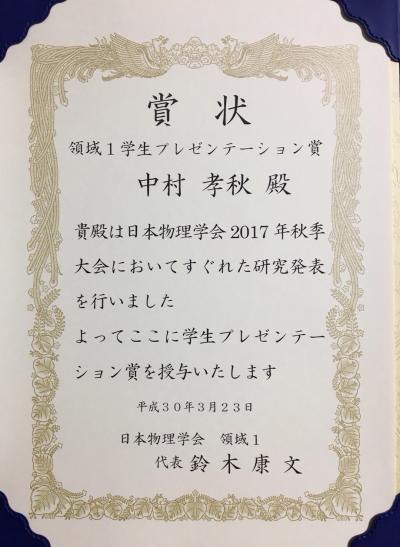 賞状
領域１学生プレゼンテーション賞
中村 孝秋 殿
貴殿は日本物理学会 2017 年秋季
大会においてすぐれた研究発表
を行いました
よってここに学生プレゼンテー
ション賞を授与いたします
平成３０年３月２３日
日本物理学会 領域１
代表 鈴木康文